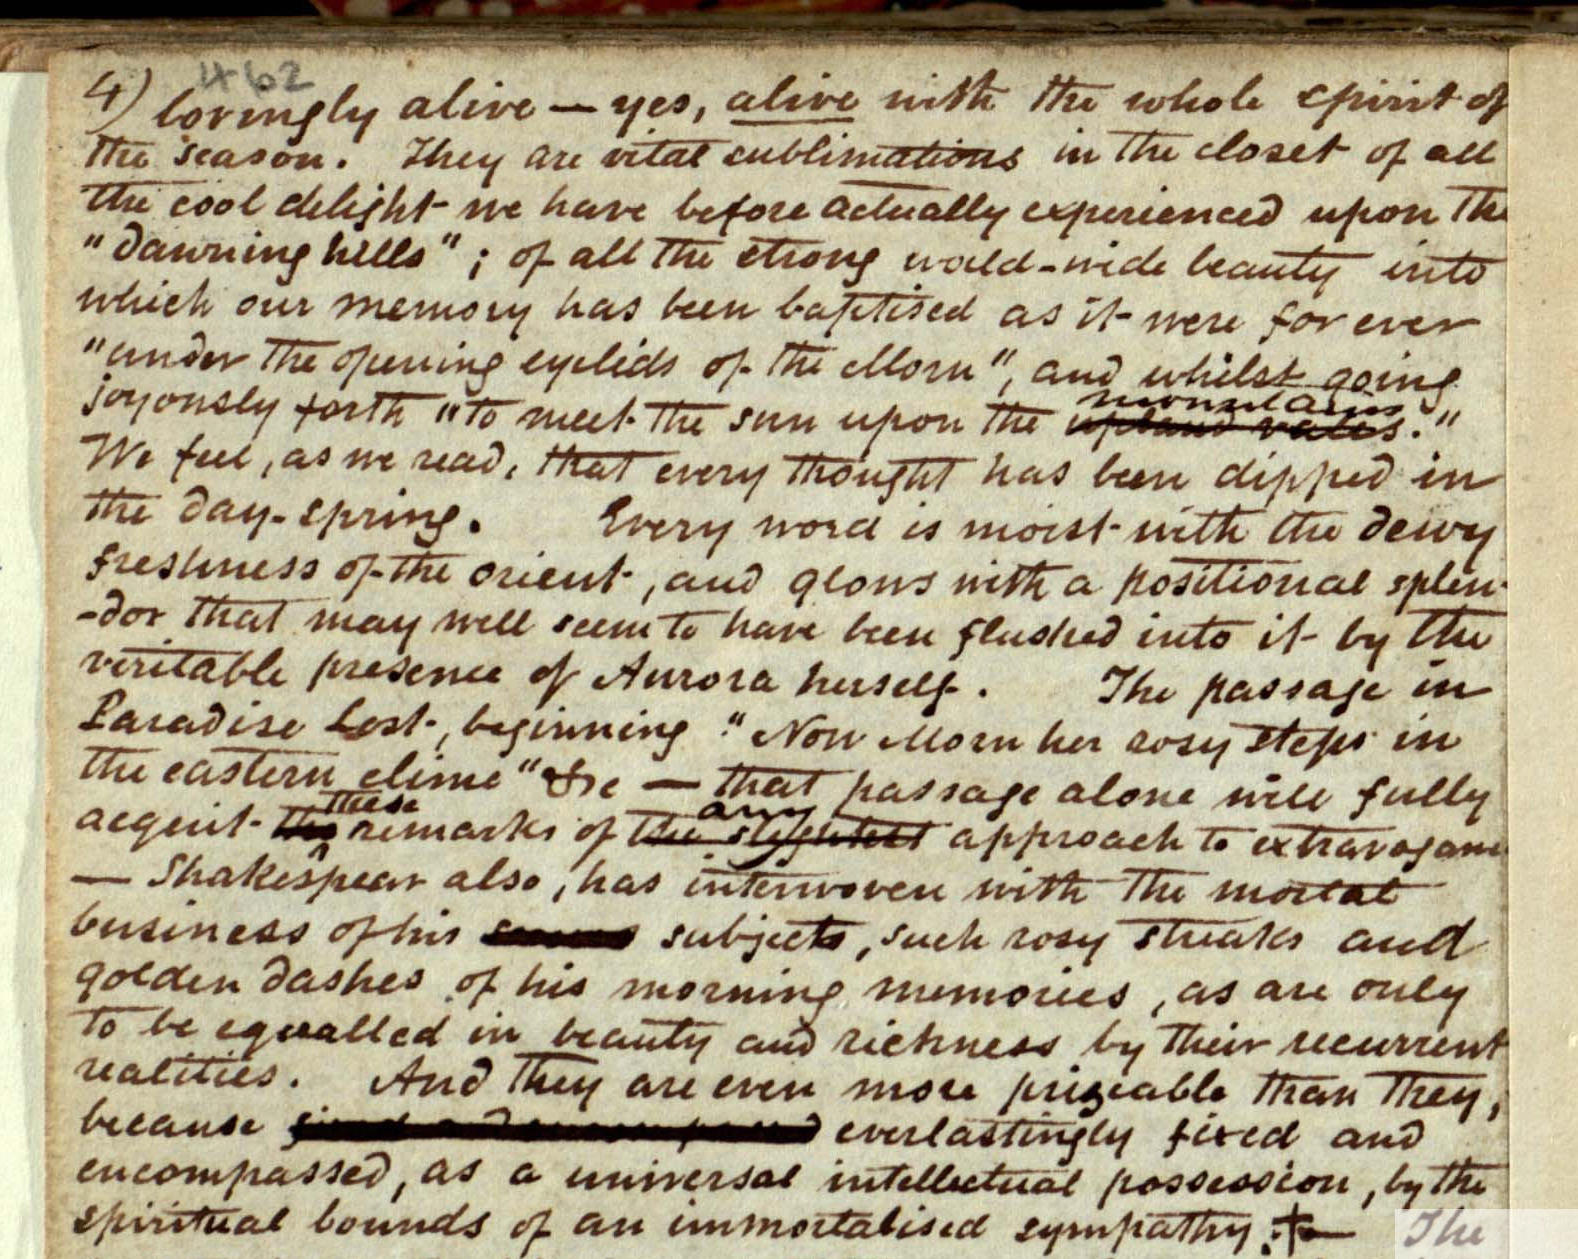 462
4) lovingly alive — yes, alive with the whole spirit of
the season. They are vital sublimations in the closet of all
the cool delight we have before actually experienced upon the
"dawning hills"; of all the strong world-wide beauty into
which our memory has been baptised as it were for ever
"under the opening eyelids of the Morn", and whilst going
mountains
joyously forth "to meet the sun upon the upland vales."
We feel, as we read, that every thought has been dipped in
the day-spring. Every word is moist with the dewy
freshness of the orient, and glows with a positional splen-
-dor that may well seem to have been flushed into it by the
veritable presence of Aurora herself. The passage in
Paradise Lost, beginning "Now Morn her rosy steps in
the eastern clime" &c — that passage alone will fully
these any
acquit the remarks of the slightest approach to extravagance
— Shakespear also, has interwoven with the mortal
business of his subjects, such rosy streaks and
golden dashes of his morning memories, as are only
to be equalled in beauty and richness by their recurrent
realities. And they are even more prizeable than they,
because everlastingly fixed and
encompassed, as a universal intellectual possession, by the
spiritual bounds of an immortalised sympathy. The